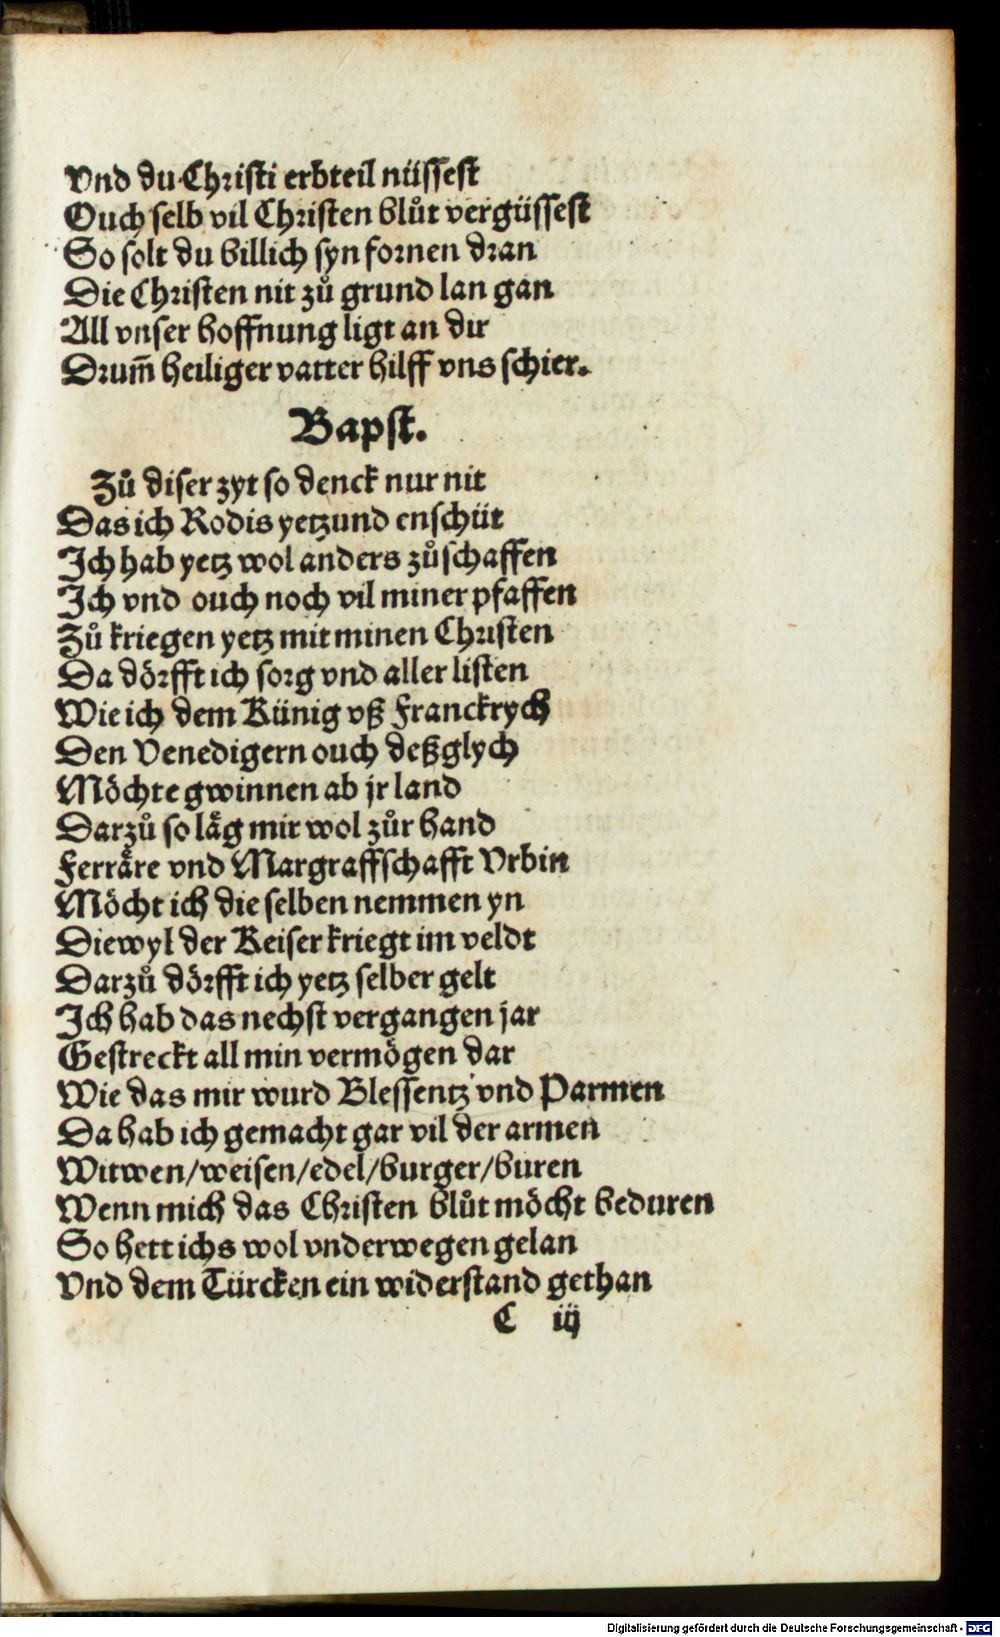 Vnd du Christi erbteil nüssest
Ouch selb vil Christen blůt vergüssest
So solt du billich syn fornen dran
Die Christen nit zů grund lan gan
All vnser hoffnung ligt an dir
Drum̃ heiliger vatter hilff vns schier.
Bapst.
Zů diser zyt so denck nur nit
Das ich Rodis yetzund enschüt
Ich hab yetz wol anders zůschaffen
Ich vnd ouch noch vil miner pfaffen
Zů kriegen yetz mit minen Christen
Da dörfft ich sorg vnd aller listen
Wie ich dem Künig vß Franckrych
Den Venedigern ouch deßglych
Möchte gwinnen ab jr land
Darzů so läg mir wol zůr hand
Ferräre vnd Margraffschafft Vrbin
Möcht ich die selben nemmen yn
Diewyl der Keiser kriegt im veldt
Darzů dörfft ich yetz selber gelt
Ich hab das nechst vergangen jar
Gestreckt all min vermögen dar
Wie das mir wurd Blessentz vnd Parmen
Da hab ich gemacht gar vil der armen
Witwen/weisen/edel/burger/buren
Wenn mich das Christen blůt möcht beduren
So hett ichs wol vnderwegen gelan
Vnd dem Türcken ein widerstand gethan
C iij
Digitalisierung gefördert durch die Deutsche Forschungsgemeinschaft - DFG